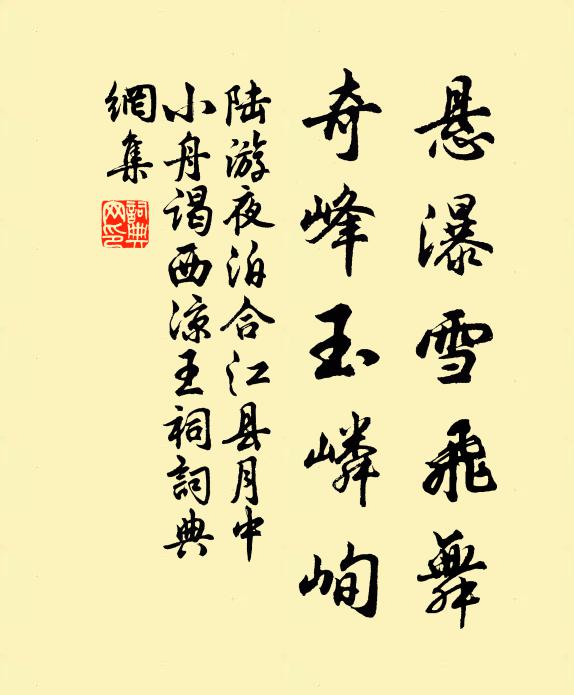 悬瀑雪飛舞
奇峰玉嶙峋
陆游夜泊合江县月中
小舟谒西凉王祠詞典
網集
詞典
网印